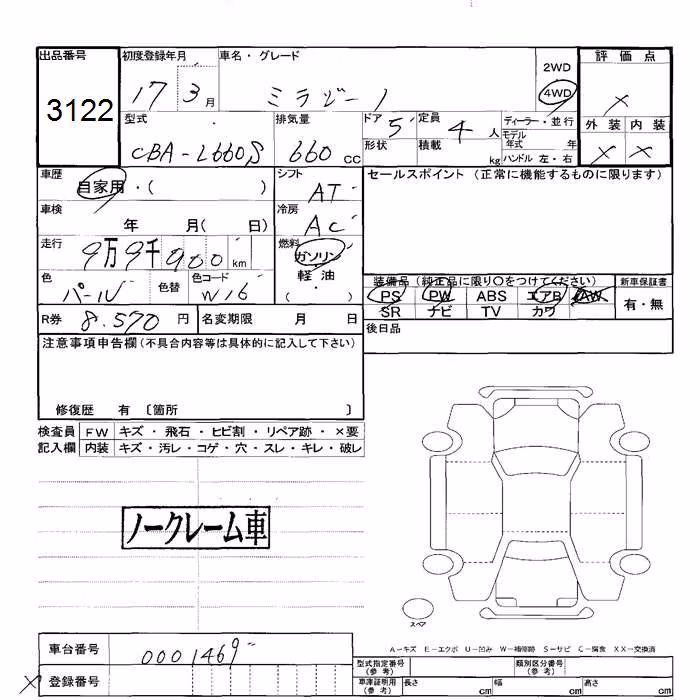 出品番号 初度登録年月 車名・グレード 評価点
3122 17 3月 ミラジーノ 2WD 4WD ×
型式 CBA-L660S 排気量 660cc ドア 5 定員 4人 ディーラー・並行 外装 内装
形状 積載 kg モデル年式 年 × ×
ハンドル 左・右
車歴 自家用・( ) シフト AT セールスポイント (正常に機能するものに限ります)
車検 年 月( 日) 冷房 AC
走行 9万9千900km 燃料 ガソリン 軽油 ( )
色 パール 色替 色コード W16
装備品(純正品に限り○をつけてください) 新車保証書
PS PW ABS エアB AW 有・無
SR ナビ TV カワ
R券 8.570円 名変期限 月 日 後日品
注意事項申告欄(不具合内容等は具体的に記入して下さい)
修復歴 有 〔箇所 〕
検査員 FW キズ・飛石・ヒビ割・リペア跡・×要
記入欄 内装 キズ・汚レ・コゲ・穴・スレ・キレ・破レ
ノークレーム車
スペア
A-キズ E-エクボ U-凹み W-補修跡 S-サビ C-腐食 XX-交換済
車台番号 0001469
型式指定番号(参考) 類別区分番号(参考)
× 登録番号
車庫証明用(参考) 長さ cm 幅 cm 高さ cm